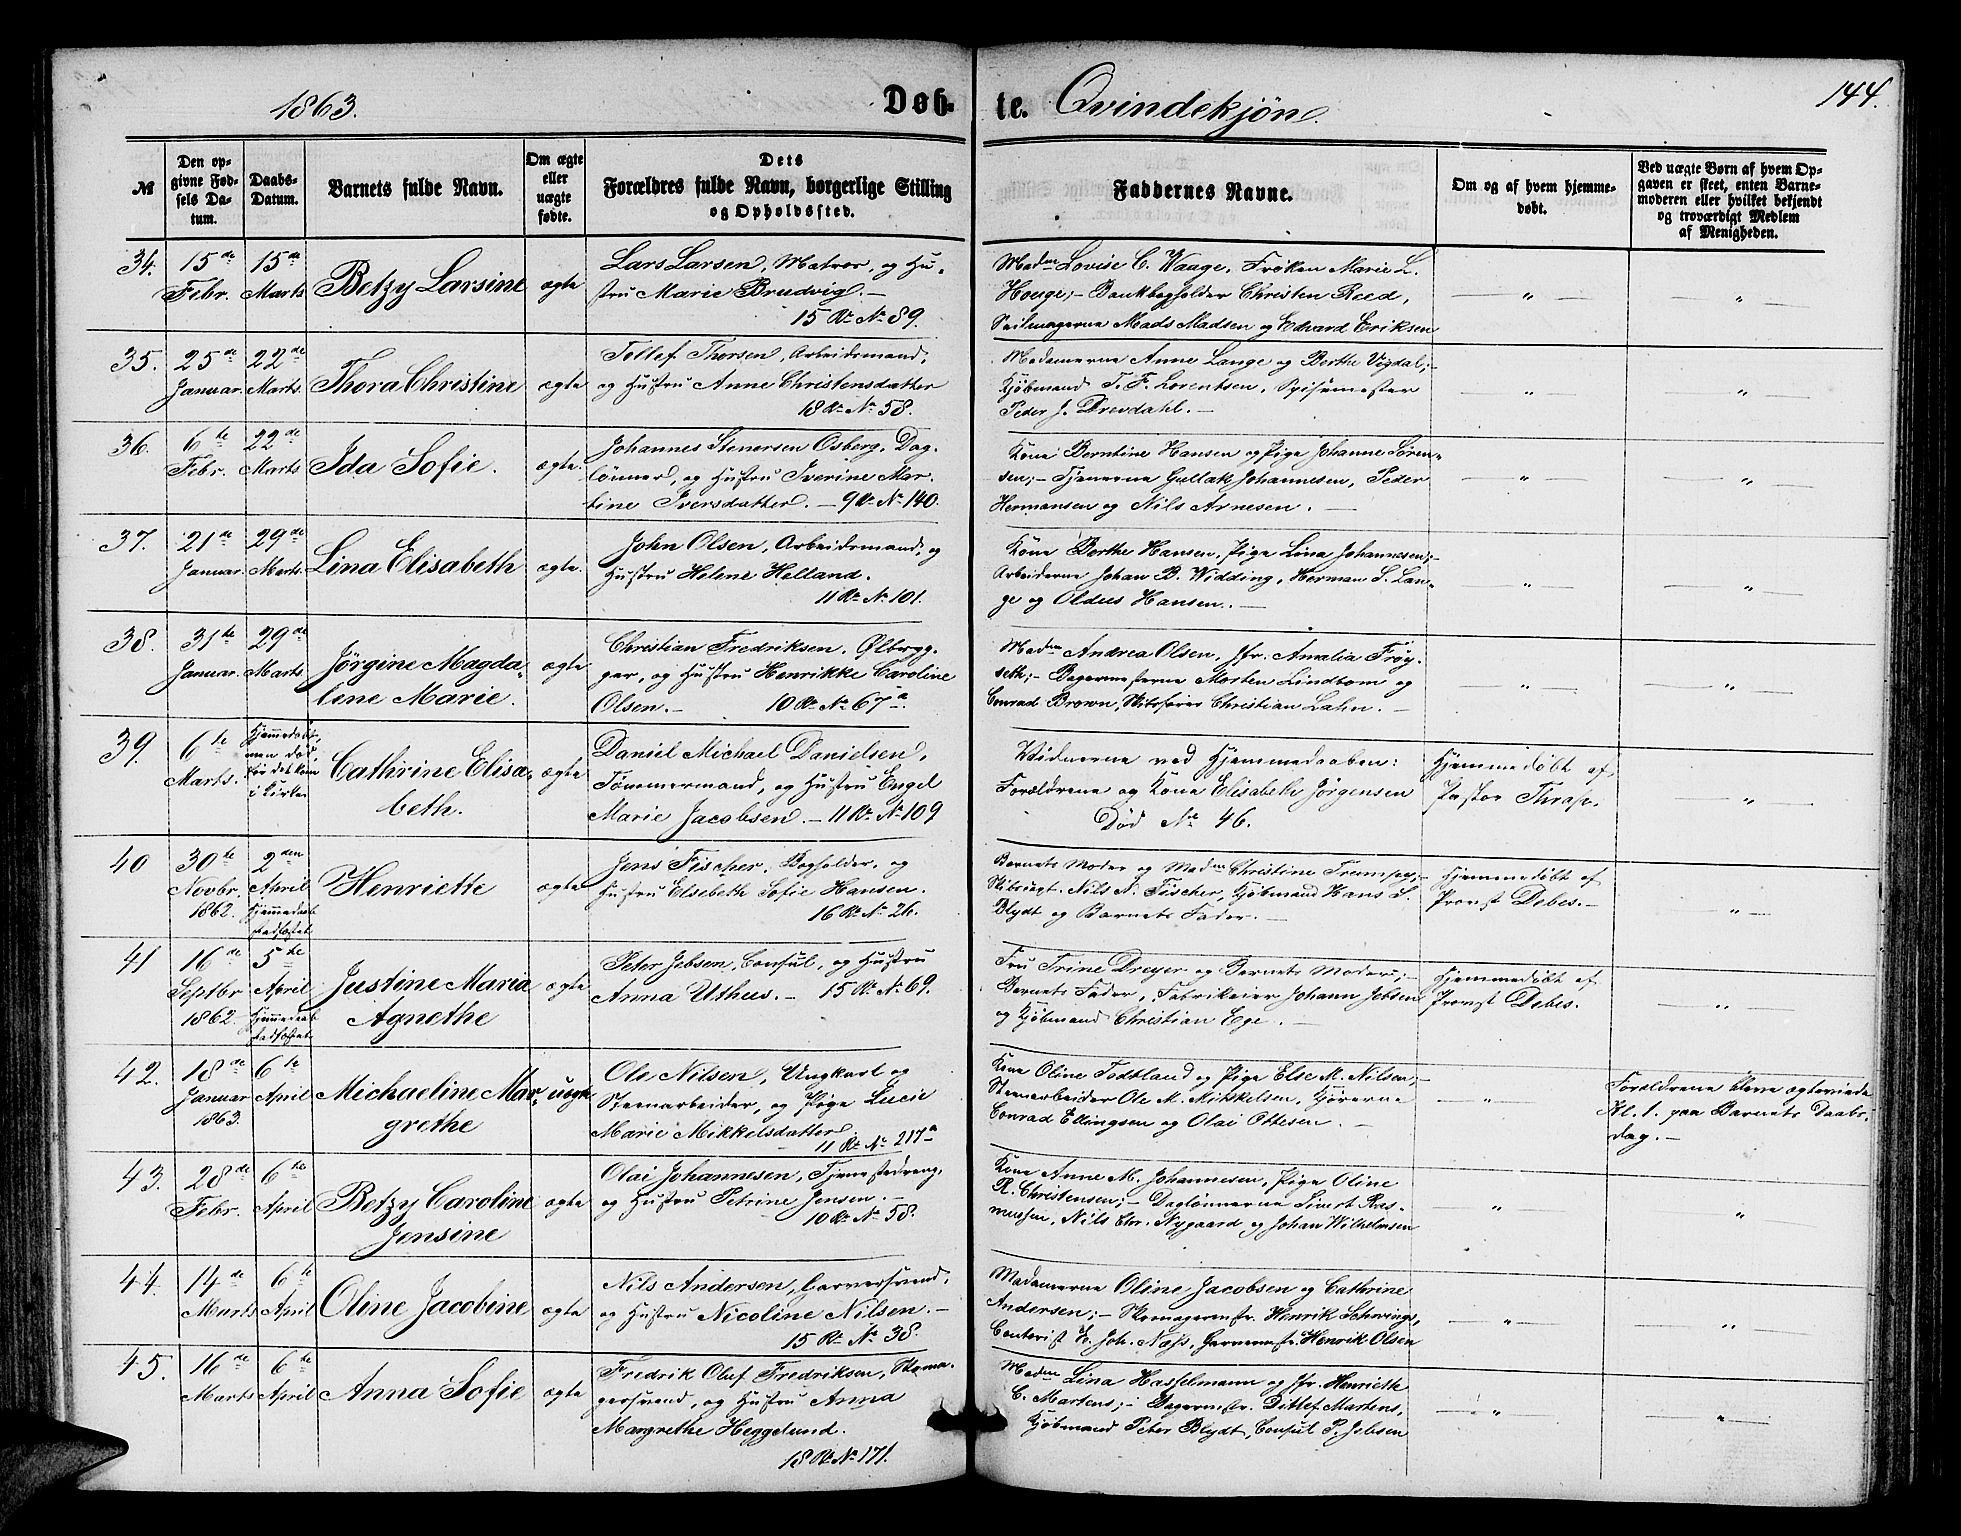 1863.
Døb-
te. Qvindekjøn.
144.
№
Den op-
givne Fød-
sels Da-
tum.
Daabs-
Datum.
Barnets fulde Navn.
Om ægte
eller
uægte
fødte.
Dets
Forældres fulde Navn, borgerlige Stilling
og Opholdssted.
Faddernes Navne.
Om og af hvem hjemme-
døbt.
Ved uægte Børn af hvem Op-
gaven er skeet, enten Barne-
moderen eller hvilket bekjendt
og troværdigt Medlem
af Menigheden.
34.
15de
Febr.
15de
Marts
Betzy Larsine
ægte
Lars Larsen, Matros, og Hu-
stru Marie Brudvig.—
15 R. No 89.
Madm Lovise C. Waage, Frøken Marie L.
Houge;— Bankbogholder Christen Reed,
Seilmagerne Mads Madsen og Edvard Eriksen
— " —
— " —
35.
25de
Januar.
22de
Marts.
Thora Christine
ægte
Tollef Thorsen, Arbeidsmand,
og Hustru Anne Christensdatter
18 R. No 58.
Madamerne Anne Lange og Berthe Vigdal;—
Kjøbmand T. F. Lorentsen, Spisemester
Peder J. Drevdahl.—
— " —
— " —
36.
6te
Febr.
22de
Marts
Ida Sofie.
ægte.
Johannes Stenersen Osberg, Dag-
lønner, og Hustru Iverine Mar-
tine Iversdatter.— 9 R. No 140.
Kone Berntine Hansen og Pige Johanne Søren-
sen;— Tjenerne Gullak Johannesen, Peder
Hermansen og Nils Arnesen.—
— " —
— " —
37.
21de
Januar.
29de
Marts.
Lina Elisabeth
ægte.
John Olsen, Arbeidsmand, og
Hustru Helene Helland.
11 R. No 101.
Kone Berthe Hansen, Pige Lina Johannesen;—
Arbeiderne Johan B. Widding, Herman S. Lan-
ge og Oldus Hansen.—
— " —
— " —
38.
31te
Januar.
29de
Marts.
Jørgine Magda-
lene Marie.
ægte
Christian Fredriksen, Ølbryg-
ger, og Hustru Henrikke Caroline
Olsen.— 10 R. No 67a.
Madm Andrea Olsen, Jfr. Amalia Frøy-
seth;— Bagermesterne Morten Lindbom og
Conrad Brown, Skibsfører Christian Lahn.—
— " —
— " —
39.
6te
Marts.
Hjemmedøbt,
men død,
før det kom
i Kirke
Cathrine Elisa-
beth.
ægte
Daniel Michael Danielsen,
Tømmermand, og Hustru Engel
Marie Jacobsen.— 11 R. No 109
Vidnerne ved Hjemmedaaben:
Forældrene og Kone Elisabeth Jørgensen
Død No 46.
Hjemmedøbt af
Pastor Thrap.
— " —
40
30te
Novbr.
1862.
2den
April
Hjemmedaab
stadfæstet
Henriette
ægte
Jens Fischer, Bogholder, og
Hustru Elsebeth Sofie Hansen.
16 R. No 26.
Barnets Moder og Madm Christine Trumpy;—
Nils N. Fischer, Kjøbmand Hans S.
Blydt og Barnets Fader.—
Hjemmedøbt af
Provst Debes.—
— " —
41
16de
Septbr.
1862.
5te
April
Hjemmedaab
stadfæstet
Justine Maria
Agnethe
ægte
Peter Jebsen, Consul, og Hustru
Anna Uthus.— 15 R. No 69.
Fru Trine Dreyer og Barnets Moder;—
Barnets Fader, Fabrikeier Johann Jebsen
og Kjøbmand Christian Ege.—
Hjemmedøbt af
Provst Debes.
— " —
42.
18de
Januar
1863.
6te
April
Michaeline Mar-
grethe
uægte
Ole Nilsen, Ungkarl og
Steenarbeider, og Pige Lucie
Marie Mikkelsdatter
11 R. No 217a
Kone Oline Todtland og Pige Else M. Nilsen;—
Steenarbeider Ole M. Mikkelsen, Kjørerne
Conrad Ellingsen og Olai Ottesen.—
— " —
Forældrene bleve ægteviede
Kl. 1. paa Barnets Daabs-
dag.—
43.
28de
Febr.
6te
April
Betzy Caroline
Jensine
ægte
Olai Johannesen, Tjenestedreng,
og Hustru Petrine Jensen.—
10 R. No 58.
Kone Anne M. Johannesen, Pige Oline
R. Christensen;— Daglønnerne Sivert Ras-
mussen, Nils Chr. Nygaard og Johan Wilhelmsen
"
"
44.
14de
Marts
6te
April
Oline Jacobine
ægte
Nils Andersen, Garversvend,
og Hustru Nicoline Nilsen.—
15 R. No 38.
Madamerne Oline Jacobsen og Cathrine
Andersen;— Skomagermstr. Henrik Schwings,
Contorist H. Joh. Næss, Garvermstr. Henrik Olsen
— " —
"
45.
16de
Marts
6te
April
Anna Sofie
ægte
Fredrik Oluf Fredriksen, Skoma-
gersvend, og Hustru Anna
Margrethe Heggelund.
18 R. No 171.
Madm Lina Hasselmann og Jfr. Henriette
C. Martens;— Bagermstr. Ditlef Martens,
Kjøbmand Peter Blydt, Consul P. Jebsen
— " —
— " —